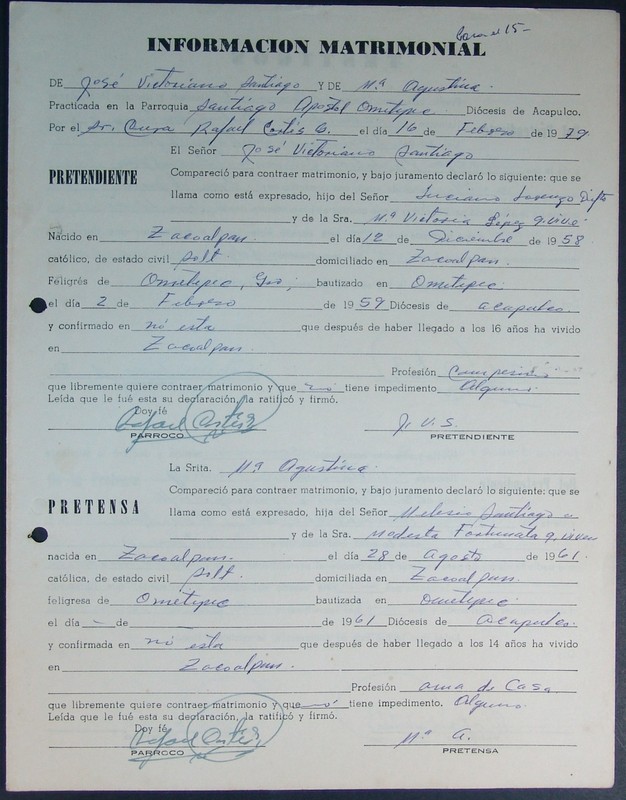 Caso el 15-
INFORMACION MATRIMONIAL
DE José Victoriano Santiago Y DE Mª Agustina.
Practicada en la Parroquia Santiago Apostol Ometepec Diócesis de Acapulco.
Por el Sr. Cura Rafael Cortés C. el día 16 de Febrero de 1979
El Señor José Victoriano Santiago
PRETENDIENTE
Compareció para contraer matrimonio, y bajo juramento declaró lo siguiente: que se
llama como está expresado, hijo del Señor Luciano Lorenzo Difto
y de la Sra. Mª Victoria López q. vive.
Nacido en Zacoalpan. el día 12 de Diciembre de 1958
católico, de estado civil solt. domiciliado en Zacoalpan.
Feligrés de Ometepec, Gro; bautizado en Ometepec.
el día 2 de Febrero de 1959 Diócesis de Acapulco.
y confirmado en nó esta que después de haber llegado a los 16 años ha vivido
en Zacoalpan.
Profesión Campesino
que libremente quiere contraer matrimonio y que nó tiene impedimento Alguno.
Leída que le fué esta su declaración, la ratificó y firmó.
Doy fé
Rafael Cortés
J. V. S.
PARROCO
PRETENDIENTE
La Srita. Mª Agustina.
PRETENSA
Compareció para contraer matrimonio, y bajo juramento declaró lo siguiente: que se
llama como está expresado, hija del Señor Melesio Santiago
y de la Sra. Modesta Fortunata q. viven
nacida en Zacoalpan. el día 28 de Agosto de 1961.
católica, de estado civil solt. domiciliada en Zacoalpan.
feligresa de Ometepec bautizada en Ometepec.
el día - de 1961 Diócesis de Acapulco.
y confirmada en nó esta que después de haber llegado a los 14 años ha vivido
en Zacoalpan.
Profesión ama de Casa
que libremente quiere contraer matrimonio y que nó tiene impedimento. Alguno.
Leída que le fué esta su declaración, la ratificó y firmó.
Doy fé
Rafael Cortés
Mª A.
PARROCO
PRETENSA